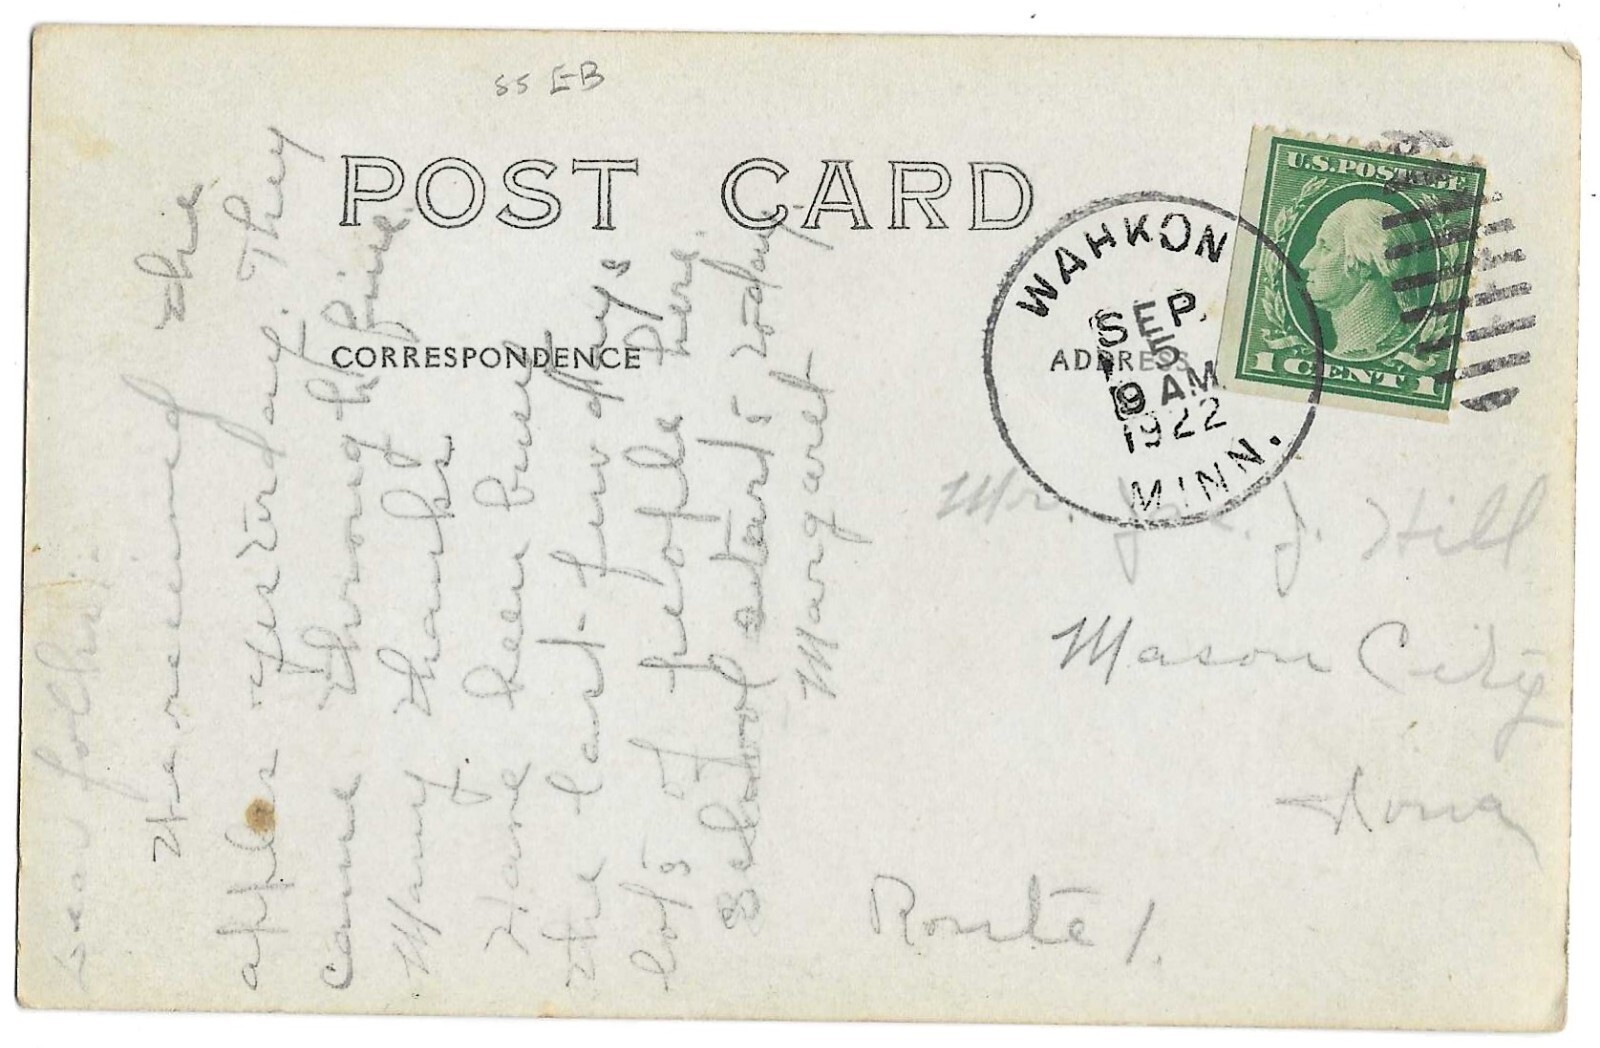 ss EB
POST CARD
CORRESPONDENCE
ADDRESS
U.S. POSTAGE
1 CENT 1
WAHKON
SEP
5
9 AM
1922
MINN.
Dear folks:
We received the
apples yesterday. They
came through fine.
Many thanks
Have been busy
the last few days
lots of people here.
School starts today.
Margaret
Mr. J. Hill
Mason City
Iowa
Route 1.